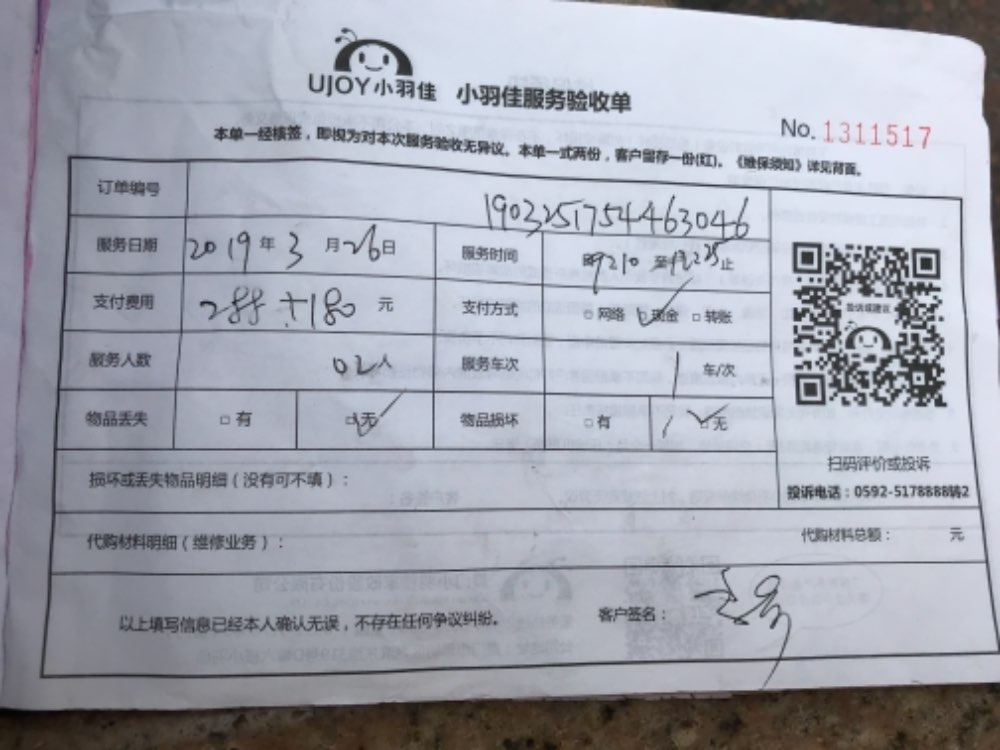 UJOY小羽佳 小羽佳服务验收单
No. 1311517
本单一经核签，即视为对本次服务验收无异议。本单一式两份，客户留存一份(红)。《维保须知》详见背面。
订单编号 1903251754463046
服务日期 2019年3月26日 服务时间 至 止
支付费用 288+180 元 支付方式 □网络 ☑现金 □转账
服务人数 02人 服务车次 1 车/次
物品丢失 □有 ☑无 物品损坏 □有 ☑无
投诉或建议
扫码评价或投诉
投诉电话：0592-5178888转2
损坏或丢失物品明细（没有可不填）：
代购材料明细（维修业务）： 代购材料总额： 元
以上填写信息已经本人确认无误，不存在任何争议纠纷。 客户签名：